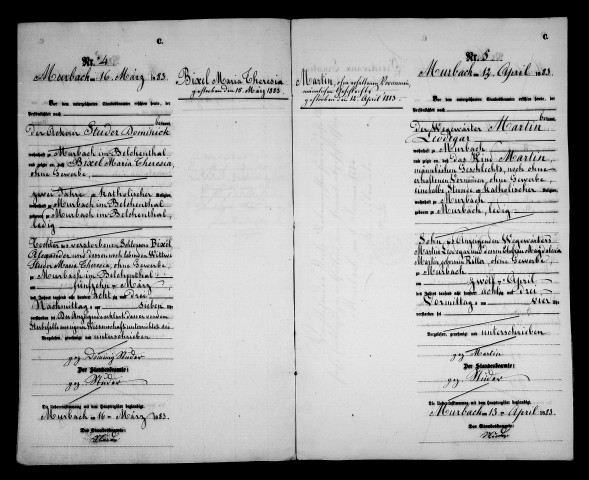 C.
Nr. 4
Murbach am 16 März 1883.
Vor dem unterzeichneten Standesbeamten erschien heute, der
Persönlichkeit nach
bekannt,
der Ackerer Studer Dominick
wohnhaft zu Murbach im Belchenthal,
und zeigte an, daß Bixel Maria Theresia,
ohne Gewerbe,
zwei Jahre, katholischer Religion,
wohnhaft zu Murbach im Belchenthal
geboren zu Murbach im Belchenthal,
ledig
Tochter des verstorbenen Bixel
und dessen noch lebenden Wittwe
Studer Maria Theresia, ohne Gewerbe
zu Murbach im Belchenthal
am fünfzehn ten März
des Jahres tausend acht hundert achtzig und drei
Nachmittags um sieben Uhr
verstorben sei. Der Anzeigende erklärt daß er von dem
Sterbefalle aus eigener Wissenschaft unterrichtet sei
Vorgelesen, genehmigt und unterschrieben
gez. Studer
Der Standesbeamte:
gez. Studer
Die Uebereinstimmung mit dem Hauptregister beglaubigt
Murbach am 16 ten März 1883.
Der Standesbeamte:
Studer
Bixel Maria Theresia
gestorben den 15. März 1883
Martin, ohne erhaltenen Vornamen,
männlichen Geschlechts
gestorben den 12. April 1883.
C.
Nr. 5
Murbach am 13 April 1883.
Vor dem unterzeichneten Standesbeamten erschien heute, der
Persönlichkeit nach
bekannt,
der Wegewärter Martin
Leodegar
wohnhaft zu Murbach
und zeigte an, daß das Kind Martin,
männlichen Geschlechts, noch ohne
erhaltenen Vornamen, ohne Gewerbe,
eine halbe Stunde alt, katholischer Religion,
wohnhaft zu Murbach
geboren zu Murbach, ledig
Sohn des Anzeigenden Wegewärters
Martin Leodegar und dessen Ehefrau Magdalena
Martin geborenen Ritter, ohne Gewerbe,
zu Murbach
am zwölf ten April
des Jahres tausend acht hundert achtzig und drei
Vormittags um vier Uhr
verstorben sei
Vorgelesen, genehmigt und unterschrieben
gez. Martin
Der Standesbeamte:
gez. Studer
Die Uebereinstimmung mit dem Hauptregister beglaubigt
Murbach am 13 ten April 1883.
Der Standesbeamte:
Studer